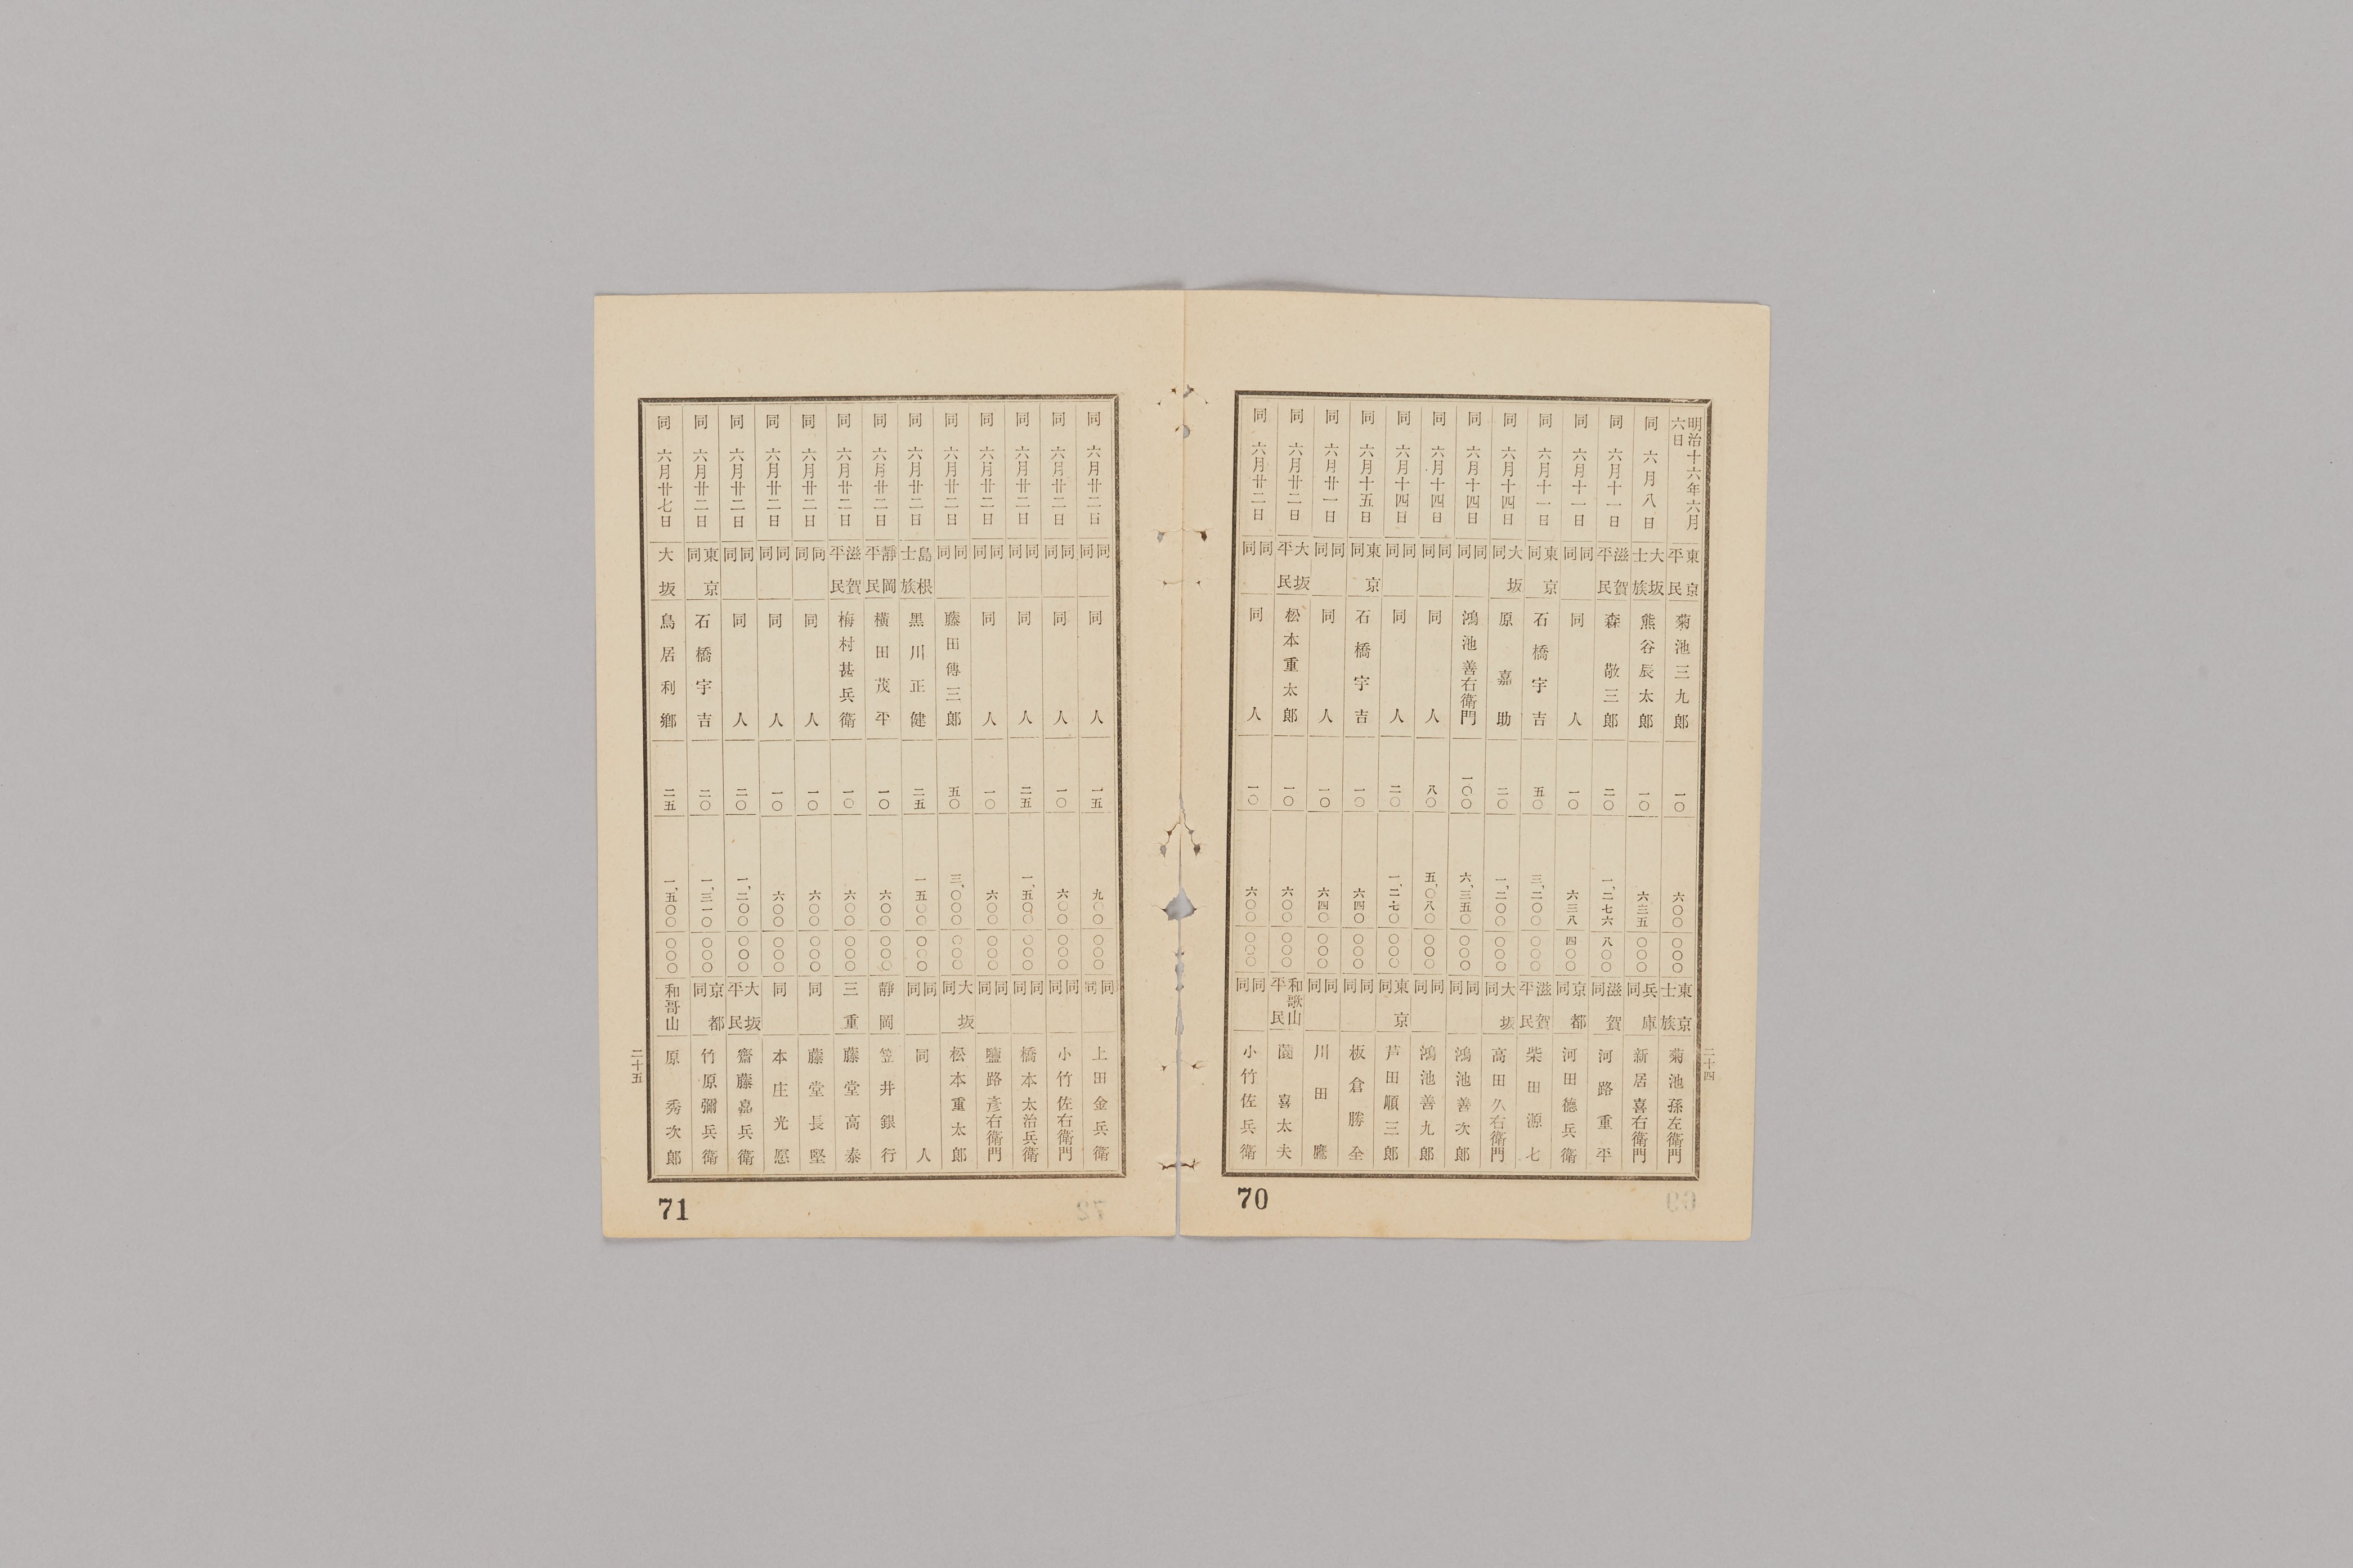 明治十六年六月六日 東京平民 菊池三九郎 一〇 六〇〇 〇〇〇 東京士族 菊池孫左衛門
同 六月八日 大坂士族 熊谷辰太郎 一〇 六三五 〇〇〇 兵庫同 新居喜右衛門
同 六月十一日 滋賀平民 森敬三郎 二〇 一、二七六 八〇〇 滋賀同 河路重平
同 六月十一日 同同 同人 一〇 六三八 四〇〇 京都同 河田德兵衛
同 六月十一日 東京同 石橋宇吉 五〇 三、二〇〇 〇〇〇 滋賀平民 柴田源七
同 六月十四日 大坂同 原嘉助 二〇 一、二〇〇 〇〇〇 大坂同 高田久右衛門
同 六月十四日 同同 鴻池善右衛門 一〇〇 六、三五〇 〇〇〇 同同 鴻池善次郎
同 六月十四日 同同 同人 八〇 五、〇八〇 〇〇〇 同同 鴻池善九郎
同 六月十四日 同同 同人 二〇 一、二七〇 〇〇〇 東京同 芦田順三郎
同 六月十五日 東京同 石橋宇吉 一〇 六四〇 〇〇〇 同同 板倉勝全
同 六月廿一日 同同 同人 一〇 六四〇 〇〇〇 同同 川田鷹
同 六月廿二日 大坂平民 松本重太郎 一〇 六〇〇 〇〇〇 和歌山平民 園喜太夫
同 六月廿二日 同同 同人 一〇 六〇〇 〇〇〇 同同 小竹佐兵衛
二十四
70
同 六月廿二日 同同 同人 一五 九〇〇 〇〇〇 同同 上田金兵衛
同 六月廿二日 同同 同人 一〇 六〇〇 〇〇〇 同同 小竹佐右衛門
同 六月廿二日 同同 同人 二五 一、五〇〇 〇〇〇 同同 橋本太治兵衛
同 六月廿二日 同同 同人 一〇 六〇〇 〇〇〇 同同 鹽路彦右衛門
同 六月廿二日 同同 藤田傳三郎 五〇 三、〇〇〇 〇〇〇 大坂同 松本重太郎
同 六月廿二日 島根士族 黑川正健 二五 一五〇〇 〇〇〇 同同 同人
同 六月廿二日 靜岡平民 橫田茂平 一〇 六〇〇 〇〇〇 靜岡 笠井銀行
同 六月廿二日 滋賀平民 梅村甚兵衛 一〇 六〇〇 〇〇〇 三重 藤堂高泰
同 六月廿二日 同同 同人 一〇 六〇〇 〇〇〇 同 藤堂長堅
同 六月廿二日 同同 同人 一〇 六〇〇 〇〇〇 同 本庄光愿
同 六月廿二日 同同 同人 二〇 一、二〇〇 〇〇〇 大坂平民 齋藤嘉兵衛
同 六月廿二日 東京同 石橋宇吉 二〇 一、三一〇 〇〇〇 京都同 竹原彌兵衛
同 六月廿七日 大坂 鳥居利鄕 二五 一、五〇〇 〇〇〇 和哥山 原秀次郎
二十五
71